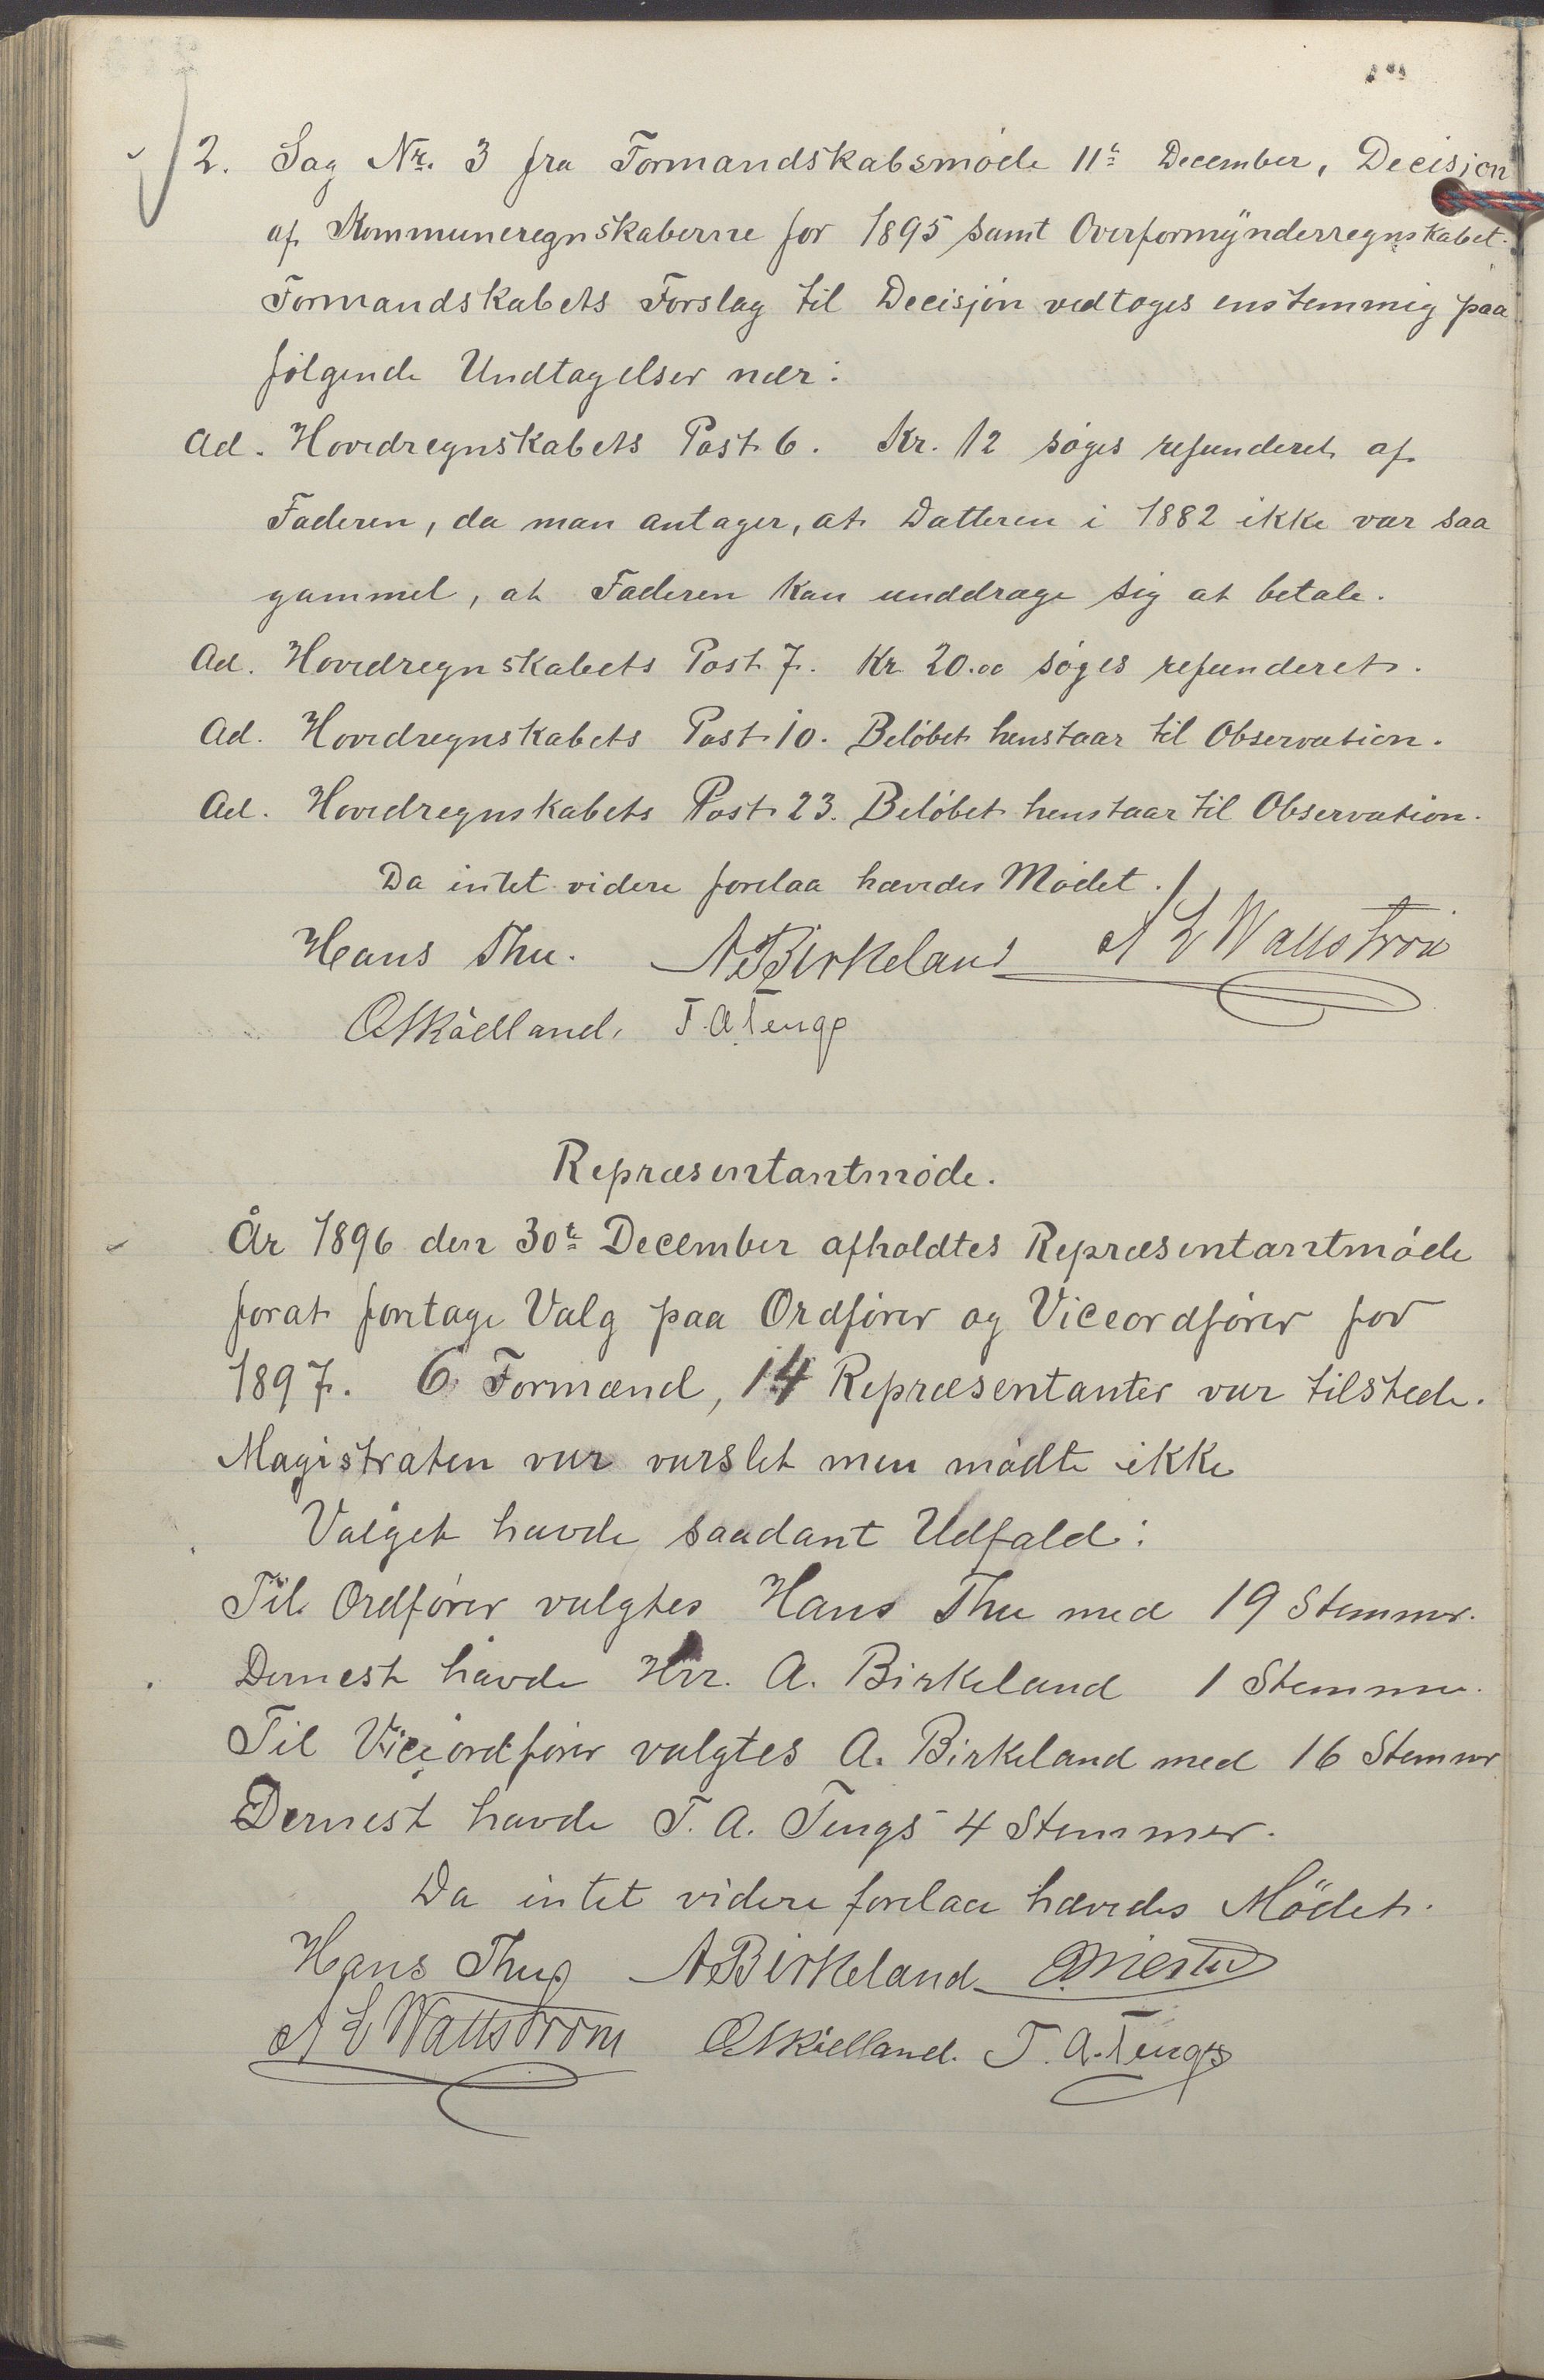 2. Sag Nr. 3 fra Formandskabsmøde 11te December, Decisjon
af Kommuneregnskaberne for 1895 samt Overformynderregnskabet.
Formandskabets Forslag til Decisjon vedtoges enstemmig paa
følgende Undtagelser nær:
Ad. Hovedregnskabets Post 6. Kr. 12 søges refunderet af
Faderen, da man antager, at Datteren i 1882 ikke var saa
gammel, at Faderen kan unddrage sig at betale.
Ad. Hovedregnskabets Post 7. Kr. 20.00 søges refunderet.
Ad. Hovedregnskabets Post 10. Beløbet henstaar til Observation.
Ad. Hovedregnskabets Post 23. Beløbet henstaar til Observation.
Da intet videre forelaa hævedes Mødet.
Hans Thu. A Birkeland A L Wattstrøm
O Skådland. T. A. Tengs
Repræsentantmøde.
År 1896 den 30te December afholdtes Repræsentantmøde
forat foretage Valg paa Ordfører og Viceordfører for
1897. 6 Formænd, 14 Repræsentanter var tilstede.
Magistraten var varslet men mødte ikke
Valget havde saadant Udfald:
Til Ordfører valgtes Hans Thu med 19 Stemmer.
Dernest havde Hrr. A. Birkeland 1 Stemme.
Til Viceordfører valgtes A. Birkeland med 16 Stemmer
Dernest havde T. A. Tengs 4 Stemmer.
Da intet videre forelaa hævedes Mødet.
Hans Thu A Birkeland
A L Wattstrøm O Skådland. T. A. Tengs